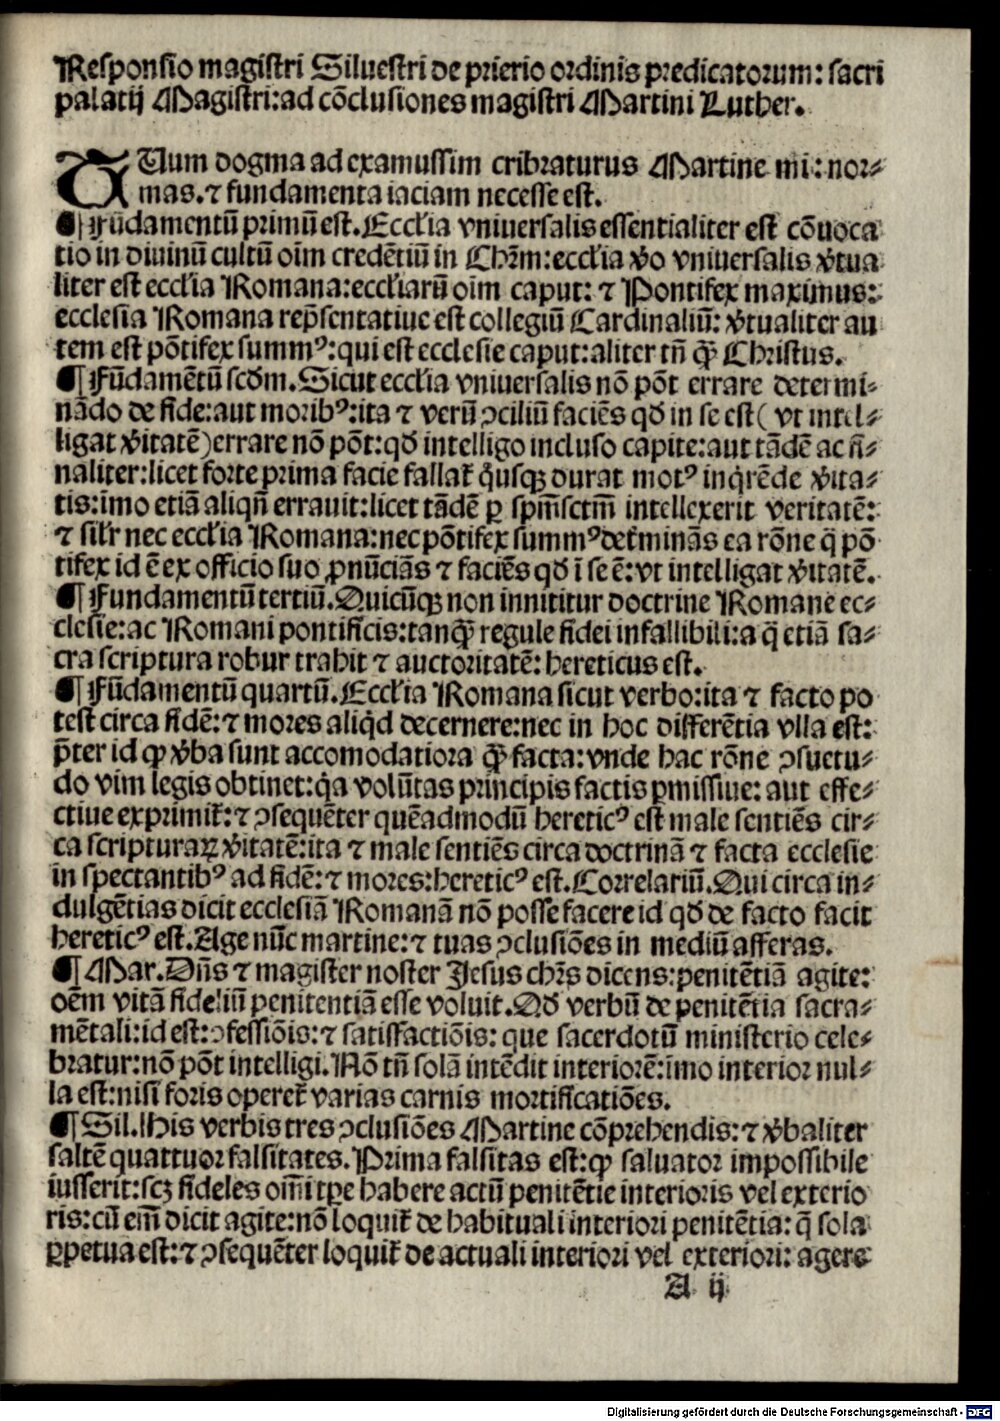 Responsio magistri Siluestri de prierio ordinis predicatorum: sacri
palatij Magistri: ad cōclusiones magistri Martini Luther.
TUum dogma ad examussim cribraturus Martine mi: nor⸗
mas. ⁊ fundamenta iaciam necesse est.
¶ Fūdamentū primū est. Eccl'ia vniuersalis essentialiter est cōuoca
tio in diuinū cultū oīm credētiū in Chr̄m: eccl'ia v̄o vniuersalis v̄tua
liter est eccl'ia Romana: eccl'iarū oīm caput: ⁊ Pontifex maximus:
ecclesia Romana rep̄sentatiue est collegiū Cardinaliū: v̄tualiter au
tem est pōtifex summꝰ: qui est ecclesie caput: aliter tn̄ ꝙ̄ Christus.
¶ Fūdamētū scd̄m. Sicut eccl'ia vniuersalis nō pōt errare determi⸗
nādo de fide: aut moribꝰ: ita ⁊ verū ↄciliū faciēs qd̄ in se est (vt intel⸗
ligat v̄itatē) errare nō pōt: qd̄ intelligo incluso capite: aut tādē ac fi⸗
naliter: licet forte prima facie fallat̄ q̇usqꝫ durat motꝰ inq̇rēde v̄ita⸗
tis: imo etiā aliqn̄ errauit: licet tādē ꝑ spm̄sctm̄ intellexerit veritatē:
⁊ sil'r nec eccl'ia Romana: nec pōtifex summꝰ det̄minās ea rōne q̄ pō
tifex id ē ex officio suo ꝓnūciās ⁊ faciēs qd̄ ī se ē: vt intelligat v̄itatē.
¶ Fundamentū tertiū. Quicūqꝫ non innititur doctrine Romane ec⸗
clesie: ac Romani pontificis: tanꝙ̄ regule fidei infallibili: a q̄ etiā sa⸗
cra scriptura robur trahit ⁊ auctoritatē: hereticus est.
¶ Fūdamentū quartū. Eccl'ia Romana sicut verbo: ita ⁊ facto po
test circa fidē: ⁊ mores aliq̇d decernere: nec in hoc differētia vlla est:
p̄ter id ꝙ v̄ba sunt accomodatiora ꝙ̄ facta: vnde hac rōne ↄsuetu⸗
do vim legis obtinet: q̇a volūtas principis factis ꝑmissiue: aut effe⸗
ctiue exprimit̄: ⁊ ↄsequēter quēadmodū hereticꝰ est male sentiēs cir⸗
ca scripturaꝝ v̄itatē: ita ⁊ male sentiēs circa doctrinā ⁊ facta ecclesie
in spectantibꝰ ad fidē: ⁊ mores: hereticꝰ est. Correlariū. Qui circa in⸗
dulgētias dicit ecclesiā Romanā nō posse facere id qd̄ de facto facit
hereticꝰ est. Age nūc martine: ⁊ tuas ↄclusiōes in mediū afferas.
¶ Mar. Dn̄s ⁊ magister noster Jesus chr̄s dicens: penitētiā agite:
oēm vitā fideliū penitentiā esse voluit. Qd̄ verbū de penitētia sacra⸗
mētali: id est: ↄfessiōis: ⁊ satisfactiōis: que sacerdotū ministerio cele⸗
bratur: nō pōt intelligi. Nō tn̄ solā intēdit interiorē: imo interior nul⸗
la est: nisi foris operet̄ varias carnis mortificatiōes.
¶ Sil. His verbis tres ↄclusiōes Martine cōprehendis: ⁊ v̄baliter
saltē quattuor falsitates. Prima falsitas est: ꝙ saluator impossibile
iusserit: scꝫ fideles om̄i tp̄e habere actū penitētie interioris vel exterio
ris: cū em̄ dicit agite: nō loquit̄ de habituali interiori penitētia: q̄ sola
ꝑpetua est: ⁊ ↄsequēter loquit̄ de actuali interiori vel exteriori: agere
A ij
Digitalisierung gefördert durch die Deutsche Forschungsgemeinschaft - DFG